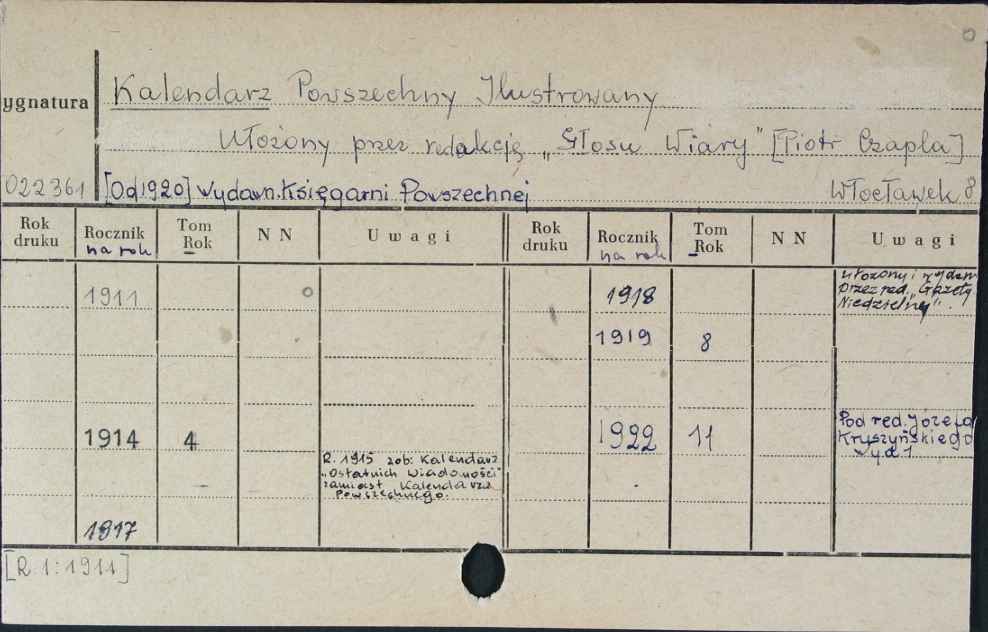 Kalendarz Powszechny Ilustrowany
ygnatura
Ułożony przez redakcję „Głosu Wiary" [Piotr Czapla]
022361 [Od 1920] wydawn. Księgarni Powszechnej Włocławek 8
Rok druku Rocznik na rok Tom Rok N N Uwagi Rok druku Rocznik na rok Tom Rok N N Uwagi
1911 1918 Ułożony i wydany
przez red. „Gazety
Niedzielnej".
1919 8
1914 4 1922 11 Pod red. Józefa
Kryszyńskiego
wyd 1
R. 1915 zob: Kalendarz
„Ostatnich Wiadomości"
zamiast Kalendarza
Powszechnego.
1917
[R. 1: 1911]